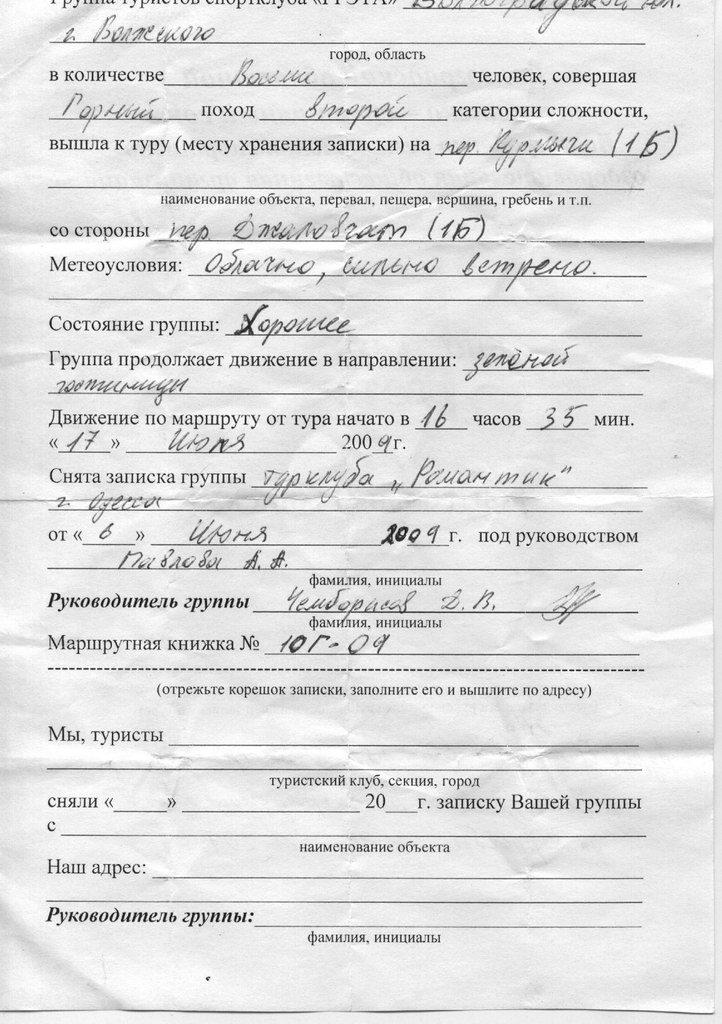 Группа туристов спортклуба Волгоградской обл.
г. Волжского
город, область
в количестве Восьми человек, совершая
Горный поход второй категории сложности,
вышла к туру (месту хранения записки) на пер. Курмычи (1Б)
наименование объекта, перевал, пещера, вершина, гребень и т.п.
со стороны пер. Джаловчат (1Б)
Метеоусловия: Облачно, сильно ветрено.
Состояние группы: Хорошее
Группа продолжает движение в направлении: зелёной
гостиницы
Движение по маршруту от тура начато в 16 часов 35 мин.
«17» Июня 2009г.
Снята записка группы турклуба „Романтик"
г. Одесса
от «6» Июня 2009г. под руководством
Павлова А. А.
фамилия, инициалы
Руководитель группы Чемборисов Д. В.
фамилия, инициалы
Маршрутная книжка № 10Г-09
(отрежьте корешок записки, заполните его и вышлите по адресу)
Мы, туристы
туристский клуб, секция, город
сняли «_____» 20___г. записку Вашей группы
с
наименование объекта
Наш адрес:
Руководитель группы:
фамилия, инициалы